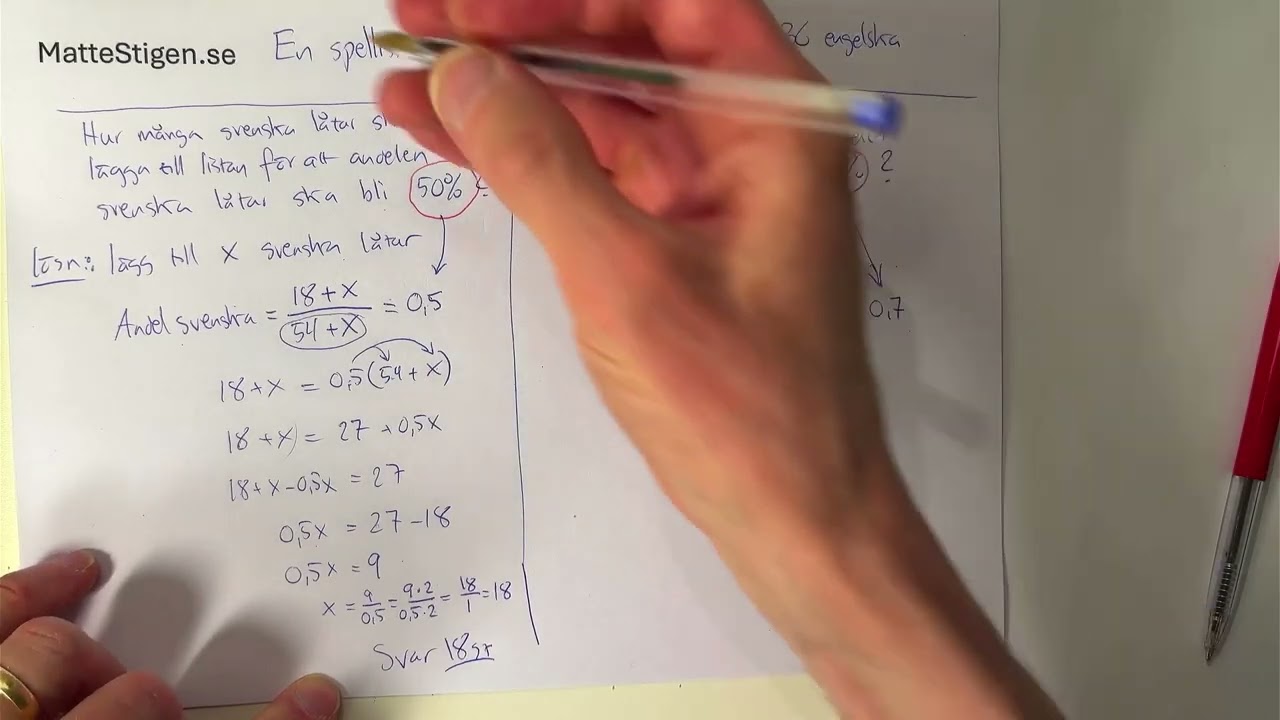 MatteStigen.se
En 36 engelska
Hur många svenska låtar
lägga till listan för att andelen
svenska låtar ska bli 50% ?
?
Lösn: lägg till x svenska låtar
Andel svenska = (18+x)/(54+x) = 0,5
0,7
18+x = 0,5(54+x)
18+x = 27+0,5x
18+x-0,5x = 27
0,5x = 27-18
0,5x = 9
x = 9/0,5 = 9·2/0,5·2 = 18/1 = 18
Svar 18 st